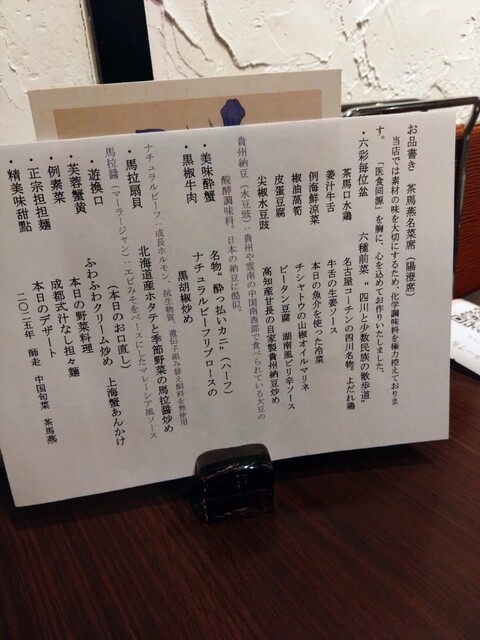 お品書き　茶馬燕名菜席（陽澄席）
当店では素材の味を大切にするため、化学調味料を極力控えておりま
す。　「医食同源」を胸に、心を込めてお作りいたしました。
・六彩毎位盆　六種前菜　“四川と少数民族の散歩道”
茶馬口水鶏　名古屋コーチンの四川名物。よだれ鶏
姜汁牛舌　牛舌の生姜ソース
例海鮮涼菜　本日の魚介を使った冷菜
椒油萵筍　チシャトウの山椒オイルマリネ
皮蛋豆腐　ピータン豆腐　湖南風ピリ辛ソース
尖椒水豆豉　高知産甘長の自家製貴州納豆炒め
貴州納豆（水豆豉）：貴州や雲南の中国南西部で食べられている大豆の
醗酵調味料。日本の納豆に酷似。
・美味酔蟹　名物。“酔っ払いカニ”（ハーフ）
・黒椒牛肉　ナチュラルビーフリブロースの
黒胡椒炒め
ナチュラルビーフ：成長ホルモン、抗生物質、遺伝子組み替え飼料を無使用
・馬拉扇貝　北海道産ホタテと季節野菜の馬拉醤炒め
馬拉醤（マーラージャン）：エビみそをベースにしたマレーシア風ソース
・遊換口　（本日のお口直し）
・芙蓉蟹黄　ふわふわクリーム炒め　上海蟹あんかけ
・例素菜　本日の野菜料理
・正宗担担麺　成都式汁なし担々麺
・精美味甜點　本日のデザート
二〇二五年　師走　中国旬菜　茶馬燕